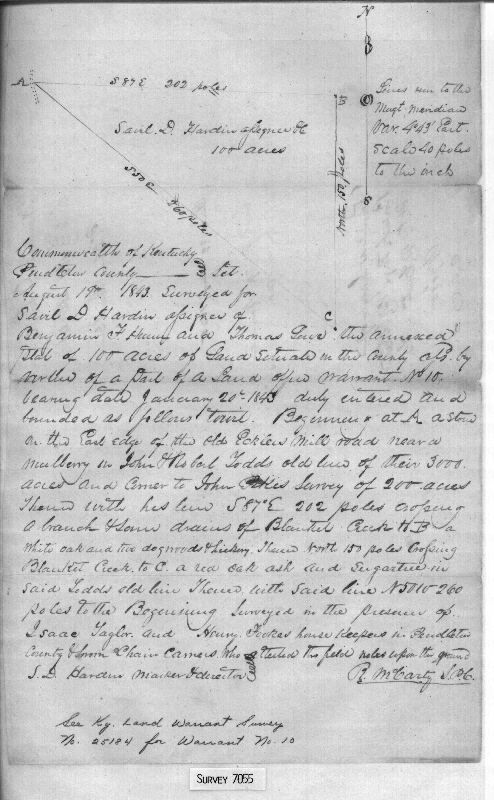 N
A
S 87 E 202 poles
B
Lines run to the
Magt. meridian
Var. 4°43' East
Scale 40 poles
to the inch
Savil. D. Hardin assignee &c
100 acres
S 50 E 260 poles
North, 150 poles
S
C
Commonwealth of Kentucky
Pendleton County Sct.
August 19th 1843. Surveyed for
Savil D Hardin assignee of
Benjamin F and Thomas the annexed
Plat of 100 acres of Land Situate in the County afsd. by
virtue of a part of a Land office warrant No 10.
bearing date January 20th 1843 duly entered and
bounded as follows towit. Beginning at A a Stone
on the East edge of the old Mill road near a
mulberry in John & Robert Todds old line of their 3000.
acres and Corner to John Survey of 200 acres
Thence with his line S 87° E 202 poles crossing
a branch & Some drains of Blanket Creek to B a
White oak and two dogwoods & hickory. Thence North 150 poles Crossing
Blanket Creek to C. a red oak ash and Sugartree in
Said Todds old line Thence with Said line N 50 W 260
poles to the Beginning Surveyed in the presence of
Isaac Taylor. and Henry house Keepers in Pendleton
County & Sworn Chain Carriers. Who attested the field notes upon the ground
S. D. Hardin Marker & director
R. McCarty S.P.C.
See Ky. Land Warrant Survey
No. 25184 for Warrant No. 10
SURVEY 7055